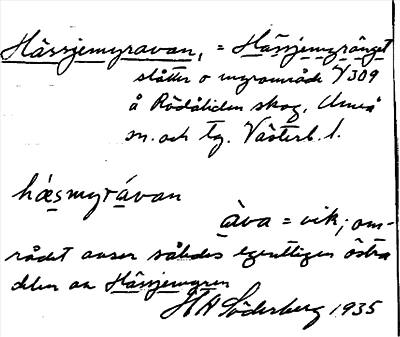 Hässjemyravan, = Hässjemyränget
slåtter o myrområde V 309
å Rödåliden skog, Umeå
sn. och tg. Västerb. l.
hæsmyrávan
àva = vik; om-
rådet avser således egentligen östra
delen av Hässjemyren
H A Söderberg 1935